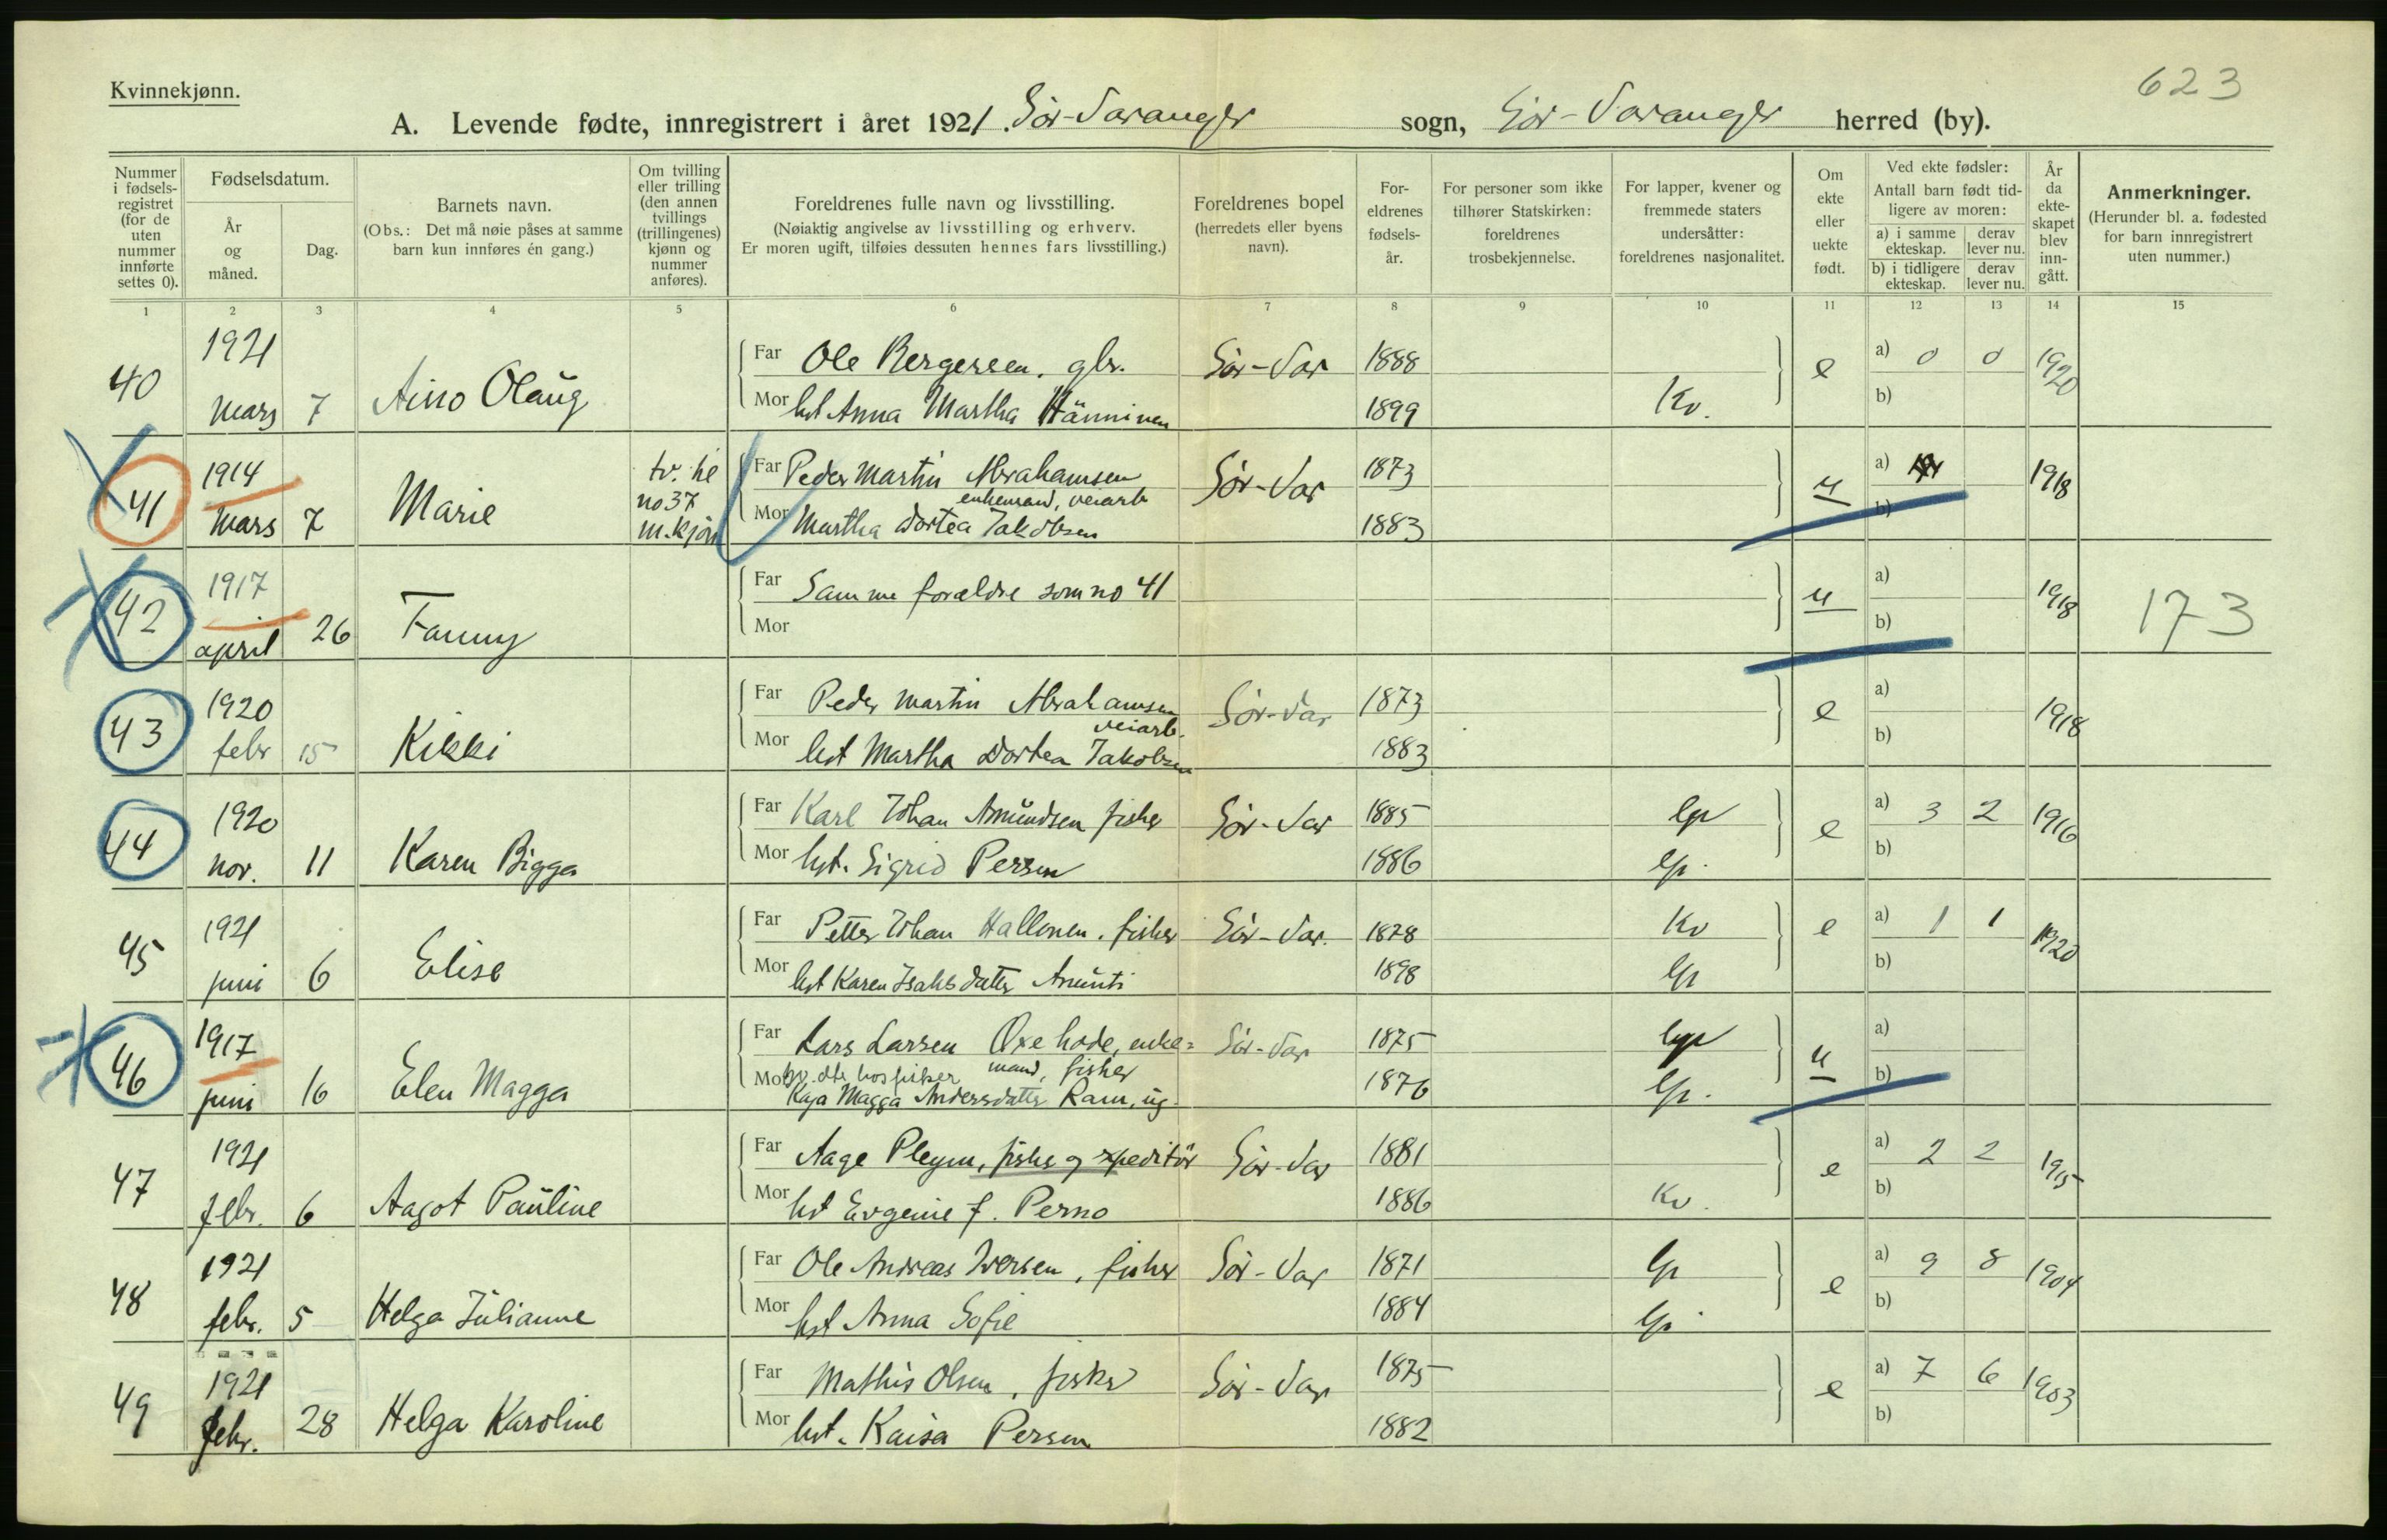 Kvinnekjønn.
623
A. Levende fødte, innregistrert i året 1921. Sör-Varanger sogn, Sör-Varanger herred (by).
Nummer i fødsels-registret (for de uten nummer innførte settes 0).
Fødselsdatum.
År og måned.
Dag.
Barnets navn.
(Obs.: Det må nøie påses at samme barn kun innføres én gang.)
Om tvilling eller trilling (den annen tvillings (trillingenes) kjønn og nummer anføres).
Foreldrenes fulle navn og livsstilling.
(Nøiaktig angivelse av livsstilling og erhverv.
Er moren ugift, tilføies dessuten hennes fars livsstilling.)
Foreldrenes bopel (herredets eller byens navn).
For-eldrenes fødsels-år.
For personer som ikke tilhører Statskirken: foreldrenes trosbekjennelse.
For lapper, kvener og fremmede staters undersåtter: foreldrenes nasjonalitet.
Om ekte eller uekte født.
Ved ekte fødsler:
Antall barn født tid-ligere av moren:
a) i samme ekteskap. derav lever nu.
b) i tidligere ekteskap. derav lever nu.
År da ekte-skapet blev inn-gått.
Anmerkninger.
(Herunder bl. a. fødested for barn innregistrert uten nummer.)
1 2 3 4 5 6 7 8 9 10 11 12 13 14 15
40 1921 mars 7 Aino Olaug
Far Ole Bergersen. gbr. Sör-Var 1888 e a) 0 0 1920
Mor hst Anna Martha Hänninen 1899 Kv. b)
41 1914 mars 7 Marie tv. til no 37 m.kjön
Far Peder Martin Abrahamsen Sör-Var 1873 u a) 1918
enkemand, veiarb
Mor Martha Dortea Jakobsen 1883 b)
42 1917 april 26 Fanny
Far Samme forældre som no 41 u a) 1918 173
Mor b)
43 1920 febr 15 Kikki
Far Peder Martin Abrahamsen Sör-Var 1873 e a) 1918
veiarb.
Mor hst Martha Dortea Jakobsen 1883 b)
44 1920 nov. 11 Karen Bigga
Far Karl Johan Amundsen fisker Sör-Var 1885 lp e a) 3 2 1916
Mor hst. Sigrid Persen 1886 lp. b)
45 1921 juni 6 Elise
Far Petter Johan Hallonen. fisker Sör-Var. 1878 Kv e a) 1 1 1920
Mor hst Karen Isaksdatter Amunti 1898 lp b)
46 1917 juni 16 Elen Magga
Far Lars Larsen Oxehode, enke= Sör-Var 1875 lp u a)
mand, fisker
Mor hos fisker 1876 lp. b)
Kaja Magga Andersdatter Ram, ug.
47 1921 febr. 6 Aagot Pauline
Far Aage Pleym, fisker og xpeditör Sör-Var 1881 e a) 2 2 1915
Mor hst Evgenie f. Perno 1886 Kv. b)
48 1921 febr. 5 Helga Julianne
Far Ole Andreas Iversen, fisker Sör-Var 1871 lp e a) 9 8 1904
Mor hst Anna Sofie 1884 lp. b)
49 1921 febr. 28 Helga Karoline
Far Mathis Olsen, fisker Sör-Var 1875 e a) 7 6 1903
Mor hst. Kaisa Persen 1882 b)